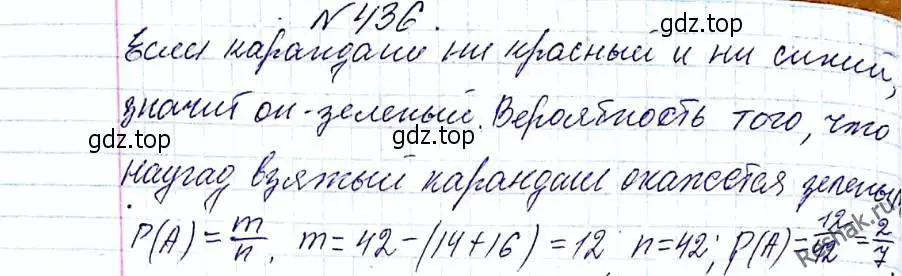 N 436.
gdz.top gdz.top
Если карандаш ни красный и ни синий,
значит он - зеленый. Вероятность того, что
gdz.top gdz.top
наугад взятый карандаш окажется зелены
P(A) = m/n, m = 42 - (14 + 16) = 12; n = 42; P(A) = 12/42 = 2/7
gdz.top gdz.top
Reshak.ru